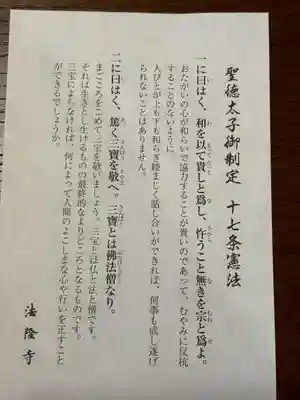 聖徳太子御制定　十七条憲法
一に曰はく、和を以て貴しと爲し、忤うこと無きを宗と爲よ。
おたがいの心が和らいで協力することが貴いのであって、むやみに反抗
することのないように
人びとが上も下も和らぎ睦まじく話し合いができれば、何事も成し遂げ
られないことはありません。
二に曰はく、篤く三寶を敬へ。三寶とは佛法僧なり。
まごころをこめて三宝を敬いましょう。三宝とは仏と法と僧です。
それは生きとし生けるものの最終的なよりどころとなるものです。
三宝によらなければ、何によって人間のよこしまな心や行いを正すこと
ができるでしょうか。
法隆寺